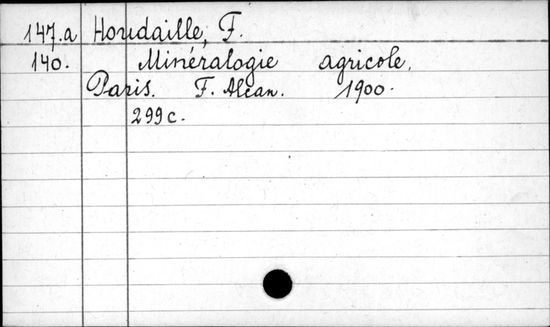 147.a Houdaille, F.
140. Minéralogie agricole.
Paris. F. Alcan. 1900.
299 c.